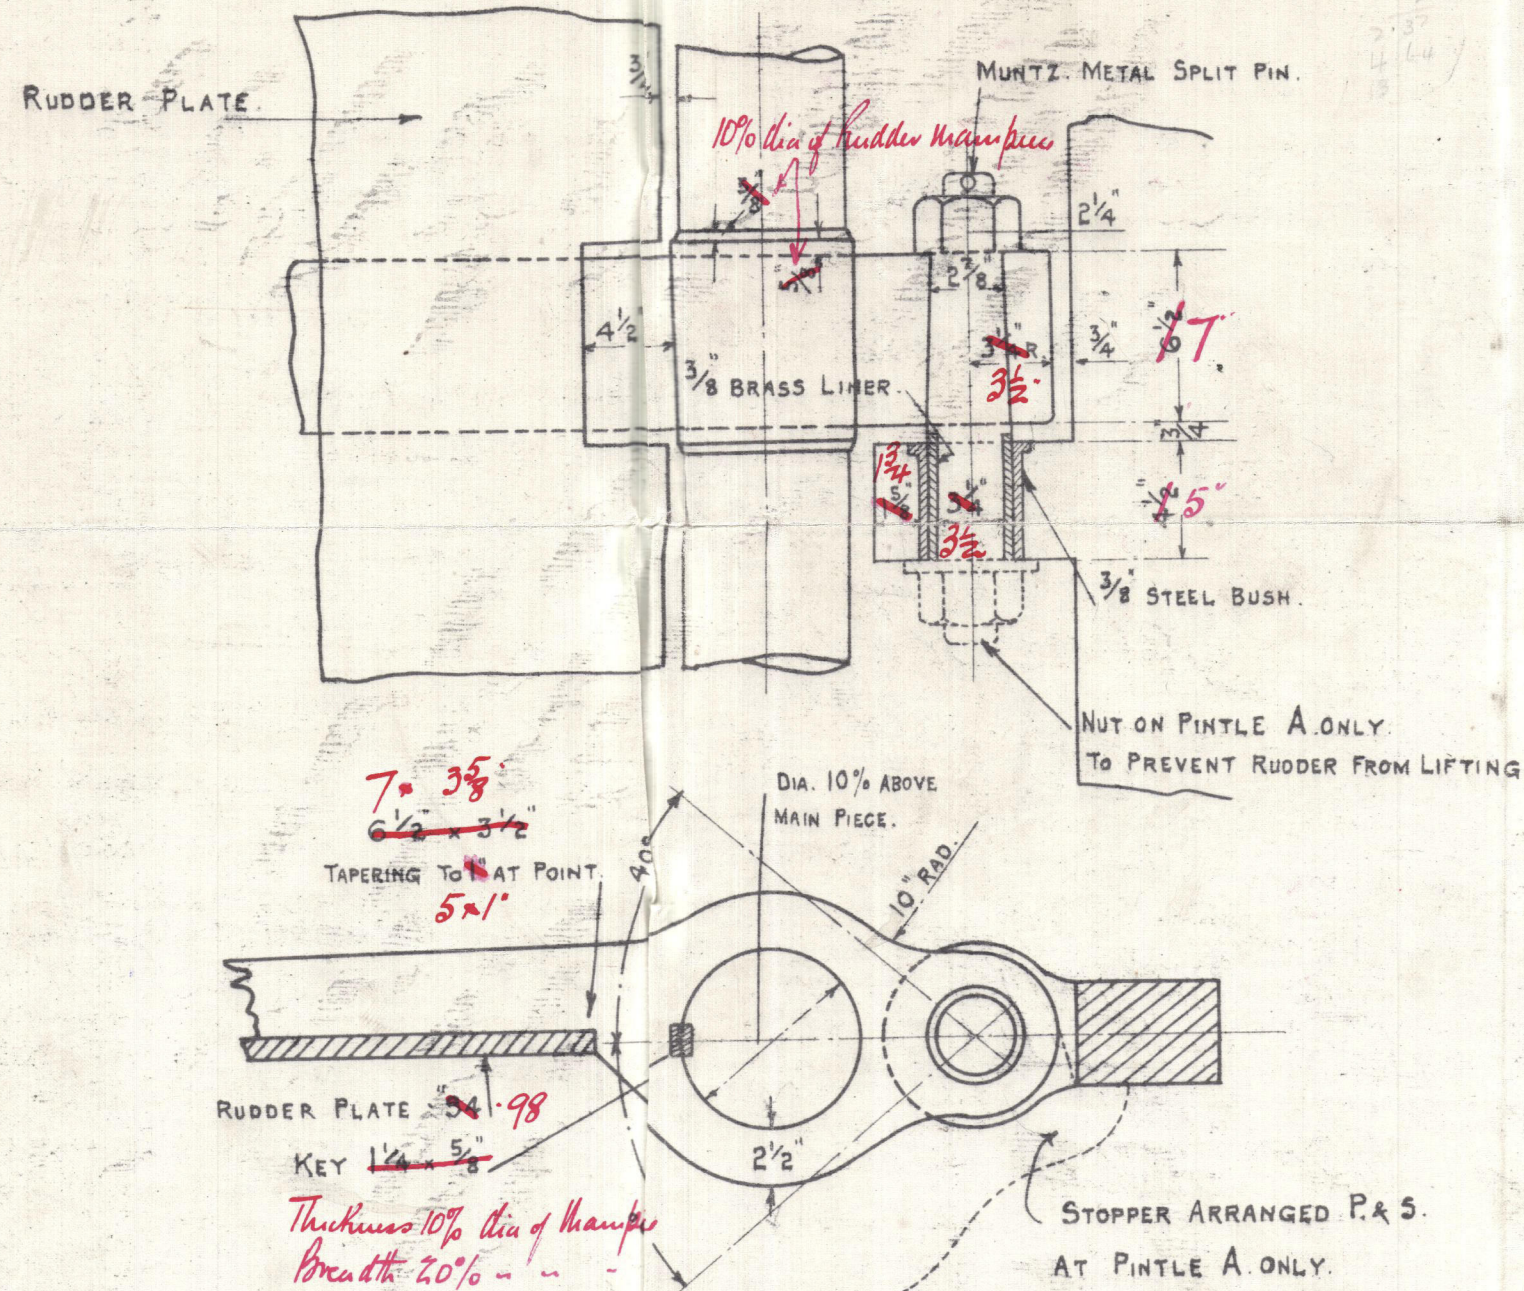 RUDDER PLATE.
3/4"
MUNTZ. METAL SPLIT PIN.
10% dia of Rudder mainpiece
3/8"
2 1/4"
5/8"
2 7/8"
4 1/2"
3 1/4" R.
3 1/2"
3/4"
6 1/2" 7"
3/8" BRASS LINER.
3/4"
1 3/4
1 5/8"
3 1/4"
3 1/2
4 1/2" 5"
3/8" STEEL BUSH.
NUT ON PINTLE A. ONLY.
TO PREVENT RUDDER FROM LIFTING
7 × 3 5/8"
6 1/2" × 3 1/2"
TAPERING TO 1" AT POINT.
5 × 1"
DIA. 10% ABOVE
MAIN PIECE.
40°
10" RAD.
RUDDER PLATE .98
KEY 1 1/4 × 5/8"
2 1/2"
Thickness 10% dia of mainpie
Breadth 20% " " "
STOPPER ARRANGED P. & S.
AT PINTLE A. ONLY.